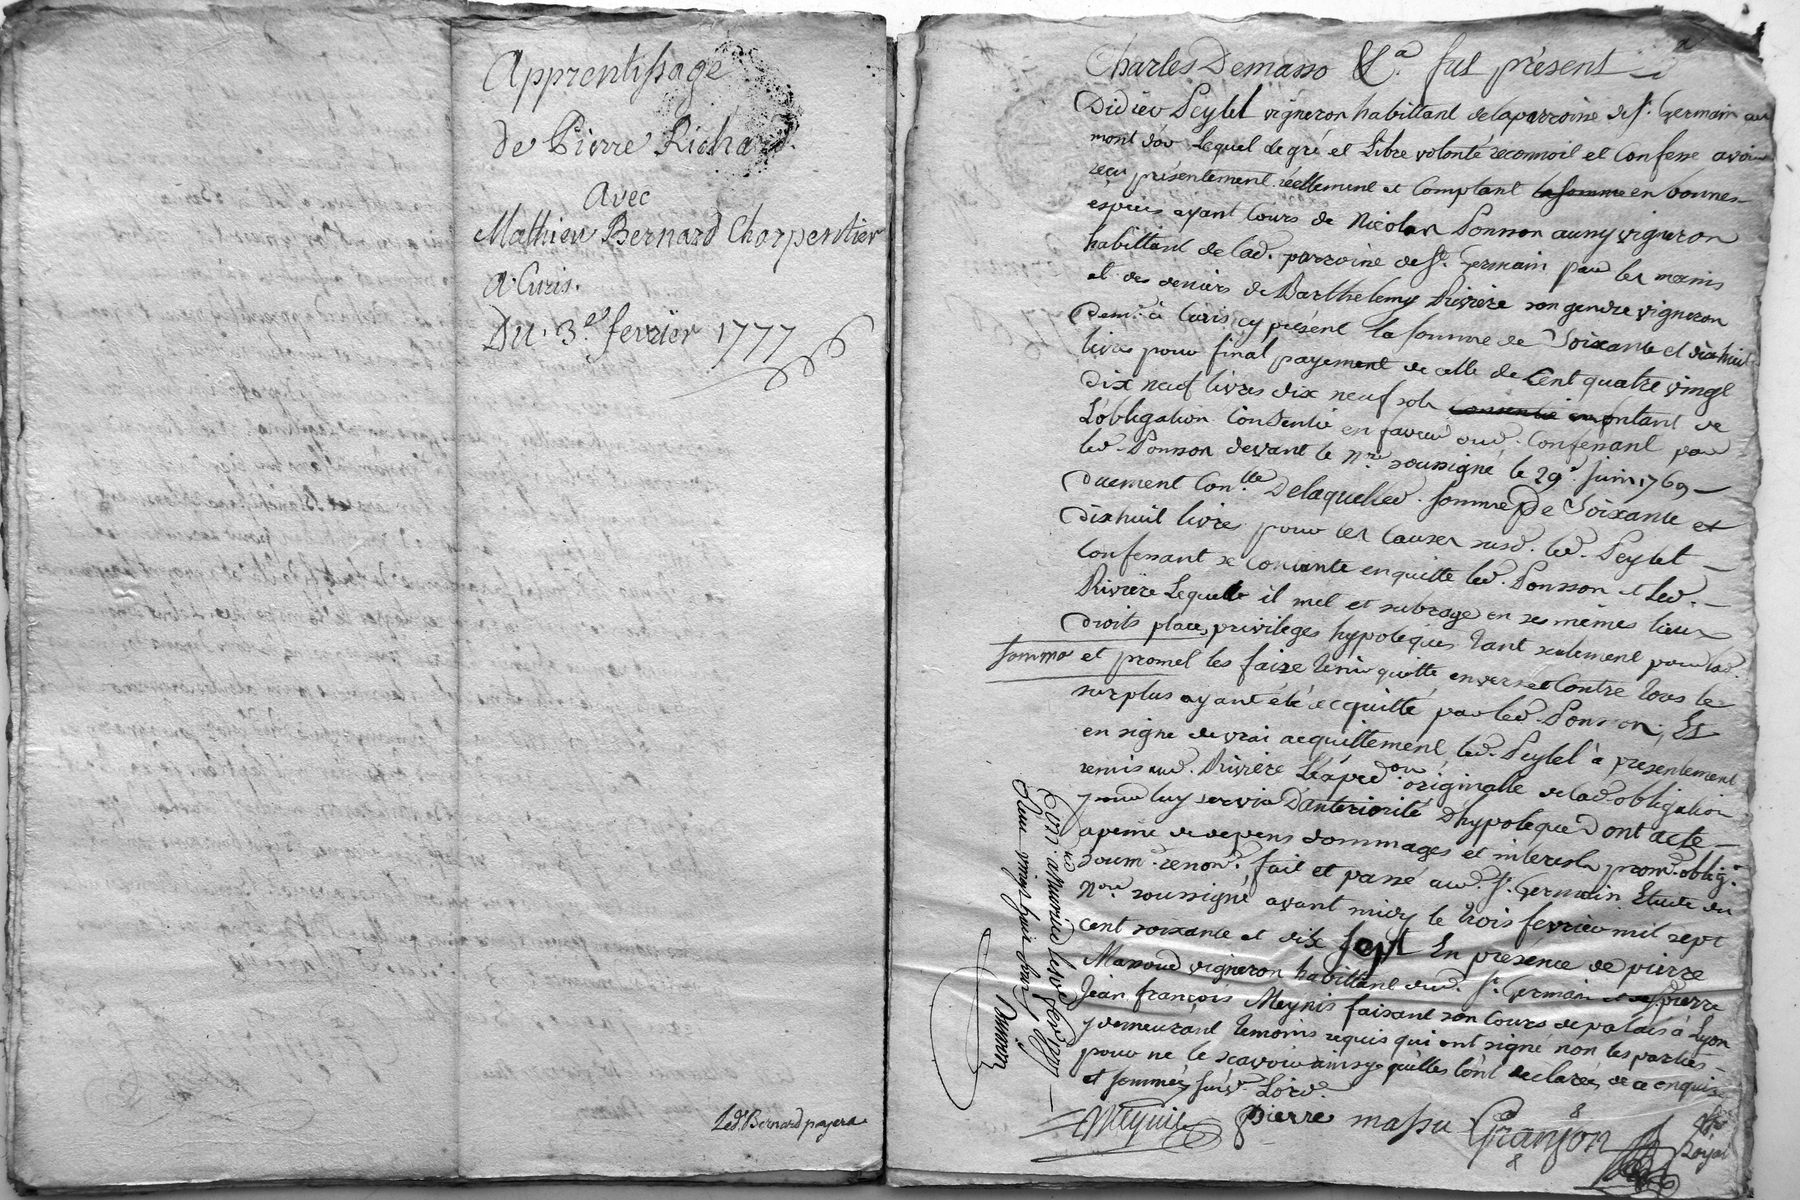 Apprentissage
de Pierre Richard
Avec
Mathieu Bernard Charpentier
A Curis.
Du. 3.e fevrier 1777
Led. Bernard payera
Charles Demasso &.a fut présent
Didier Peytel vigneron habittant de la parroisse de St. Germain au
mont d'or Lequel de gré et Libre volonté reconnoit et Confesse avoir
reçu présentement réellement et Comptant la somme en bonnes
espèces ayant Cours de Nicolas Ponson vigneron
habittant de lad. parroisse de St. Germain par les mains
et des deniers de Barthelemy Riviere son gendre vigneron
dem.t à Curis cy présent la somme de Soixante et dix huit
livres pour final payement de celle de Cent quatre vingt
dix neuf livres dix neuf sols montant de
L'obligation Consentie en faveur dud. Confessant par
led. Ponson devant le N.re soussigné le 29.e Juin 1769
duement Con.llée De laquelle d. somme De Soixante et
dix huit livres pour les Causes susd. led. Peytel
Confessant se Contente en quitte led. Ponsson et led.
Riviere Lequel il met et subroge en ses mêmes lieux
droits place, privileges hypoteques tant seulement pour lad.
somme et promet les faire tenir quitte envers et Contre tous le
surplus ayant été acquitté par led. Ponson; Et
en signe de vrai acquittement, led. Peytel à présentement
remis aud. Riviere L'expéd.on originalle de lad obligation
pour luy servir D'anteriorité D'hypoteque Dont acte
a peine de depens dommages et interests prom. oblig.
soum. renon. fait et passé aud. St. Germain Etude du
N.re soussigné, avant midy le trois fevrier mil sept
cent soixante et dix sept En présence de pierre
Massoud vigneron habittant dud. St. Germain et de pierre
Jean françois Meynis faisant son Cours de palais à Lyon
y demeurant temoins requis qui ont signé non les parties
pour ne le scavoir ainsy qu'elles l'ont declarés de ce enquis
et sommés suiv. L'ord.
Meynis pierre massu Granjon
N.re Royal